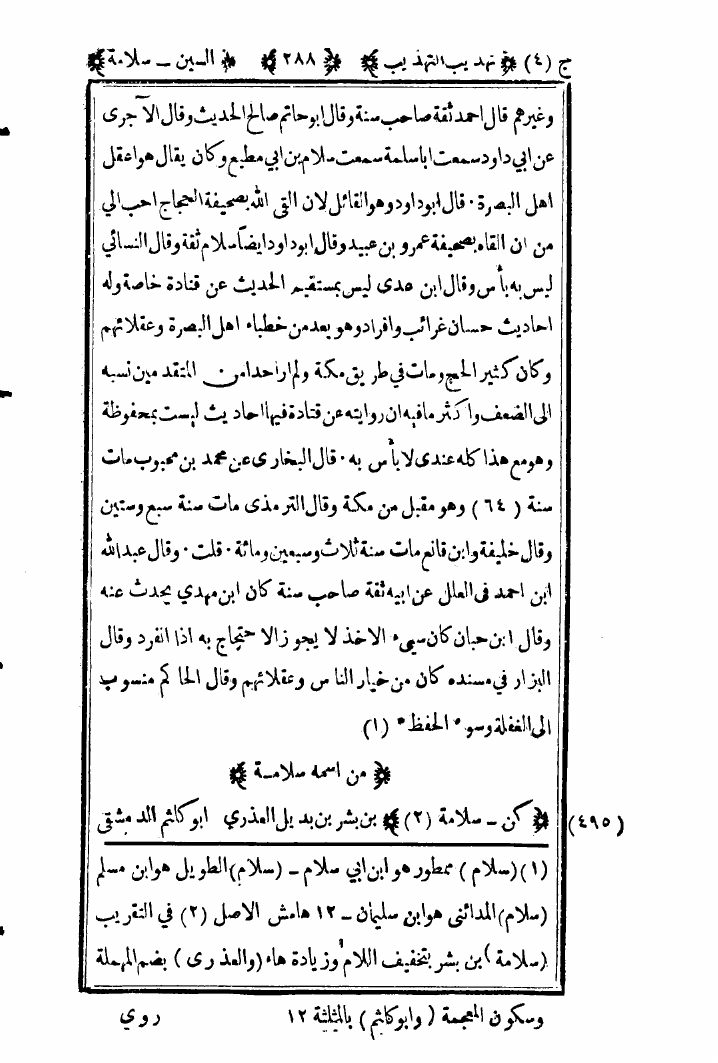 ج (٤) ﴿ تهذيب التهذيب ﴾ ﴿ ٢٨٨ ﴾ ﴿ السين ـ سلامة ﴾
وغيرهم قال احمد ثقة صاحب سنة وقال ابوحاتم صالح الحديث وقال الآجرى
عن ابي داود سمعت اباسلمة سمعت سلام بن ابي مطيع وكان يقال هو اعقل
اهل البصرة ٠ قال ابوداود وهو القائل لان القى الله بصحيفة الحجاج احب الي
من ان القاه بصحيفة عمرو بن عبيد وقال ابوداود ايضاً سلام ثقة وقال النسائي
ليس به بأس وقال ابن عدى ليس بمستقيم الحديث عن قتادة خاصة وله
احاديث حسان غرائب وافراد وهو يعد من خطباء اهل البصرة وعقلائهم
وكان كثير الحج ومات في طريق مكة ولم ار احدا من المتقدمين نسبه
الى الضعف واكثر مافيه ان روايته عن قتادة فيها احاديث ليست بمحفوظة
وهو مع هذا كله عندى لا بأس به ٠ قال البخارى عن محمد بن محبوب مات
سنة (٦٤) وهو مقبل من مكة وقال الترمذى مات سنة سبع وستين
وقال خليفة وابن قانع مات سنة ثلاث وسبعين ومائة ٠ قلت ٠ وقال عبدالله
ابن احمد فى العلل عن ابيه ثقة صاحب سنة كان ابن مهدي يحدث عنه
وقال ابن حبان كان سيىء الاخذ لا يجوز الاحتجاج به اذا انفرد وقال
البزار في مسنده كان من خيار الناس وعقلائهم وقال الحاكم منسوب
الى الغفلة وسوء الحفظ ٠ (١)
﴿ من اسمه سلامة ﴾
(٤٩٥) ﴿ كن ـ سلامة (٢) ﴾ بن بشر بن بديل العذري ابوكلثم الدمشقى
(١) (سلام) ممطور هو ابن ابي سلام ـ (سلام) الطويل هو ابن مسلم
(سلام) المدائنى هو ابن سليمان ـ ١٢ هامش الاصل (٢) في التقريب
(سلامة) بن بشر بتخفيف اللام وزيادة هاء (والعذرى) بضم المهملة
وسكون المعجمة (وابوكلثم) بالمثلثة ١٢ روي